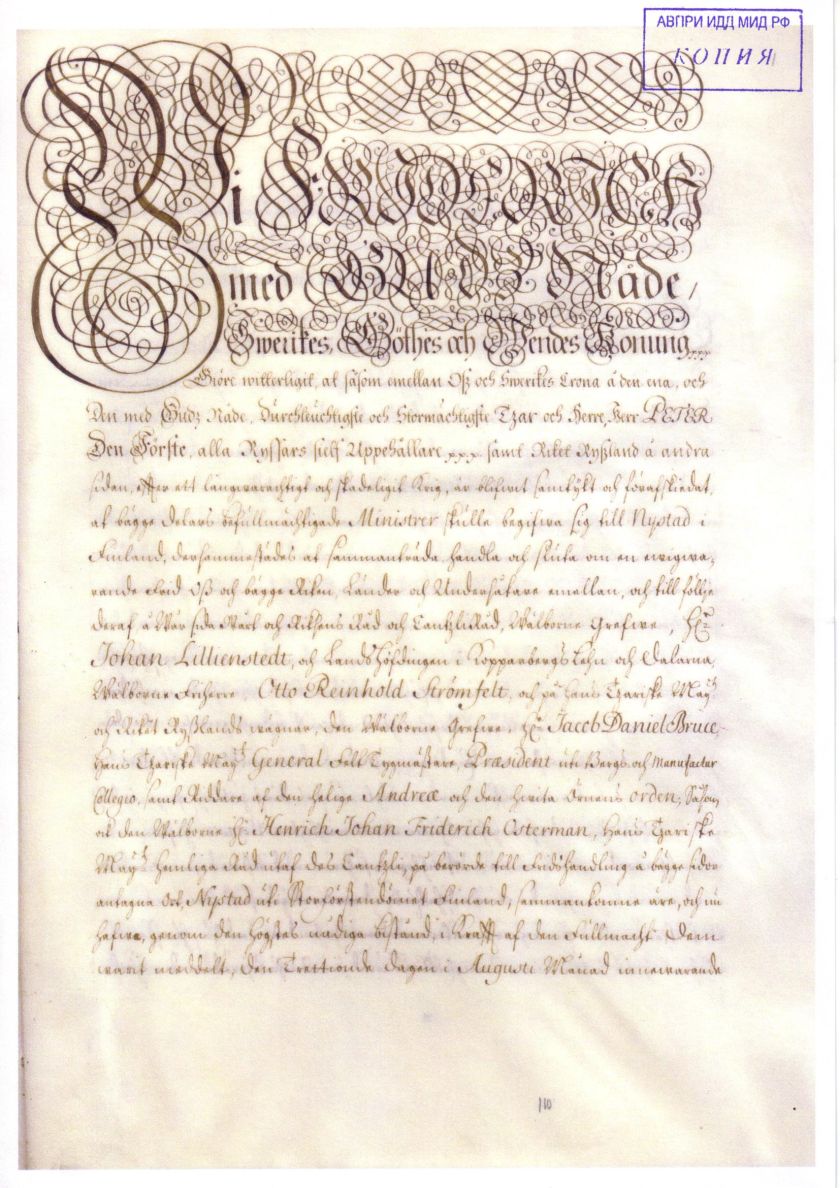 АВПРИ ИДД МИД РФ
КОПИЯ
Wi FRIDERICH
med GUDZ Nåde,
Swerikes, Göthes och Wendes Konung xxx
Giöre witterligit, at såsom emellan Oß och Swerikes Crona å den ena, och
Den med Gudz Nåde, Durchleuchtigste och Stormächtigste Tzar och Herre, Herr PETER
Den Förste, alla Ryssars sielf Uppehållare xxx samt Riket Ryßland å andra
siden, efter ett långwarachtigt och skadeligit Krig, är blifwit samtykt och förafskiedat,
at bägge delars befullmächtigade Ministrer skulle begifwa sig till Nystad i
Finland, dersammestädes at sammanträda, handla och sluta om en ewigwa,
rande Frid Oß och bägge Riken, Länder och Undersåtare emellan, och till föllje
deraf å Wår sida Wårt och Riksens Råd och CantzliRåd, Wälborne Grefwe, Hr
Johan Lillienstedt, och Landshöfdingen i Kopparbergs Lehn och Dalarna,
Wälborne Friherre, Otto Reinhold Strömfelt, och på Hans Tzariske Mayt
och Riket Ryßlands wägnar, den Wälborne Grefwe, Hr Jacob Daniel Bruce,
Hans Tzariske Mayt General FeltTygmästare, Præsident uti Bergs och Manufactur
Collegio, samt Riddare af den helige Andreæ och den hwita Örnens orden, Såsom
ock den Wälborne Hr Henrich Johan Friderich Osterman, Hans Tzariske
Mayt Hemliga Råd utaf des Cantzli, på berörde till Fridshandling å bägge sidor
antagna Ort, Nystad uti Storförstendömet Finland, sammankomne äre, och nu
hafwa, genom den Högstes nådiga bistånd, i Krafft af den Fullmacht Dem
warit meddelt, den Trettionde dagen i Augusti Månad innewarande
110